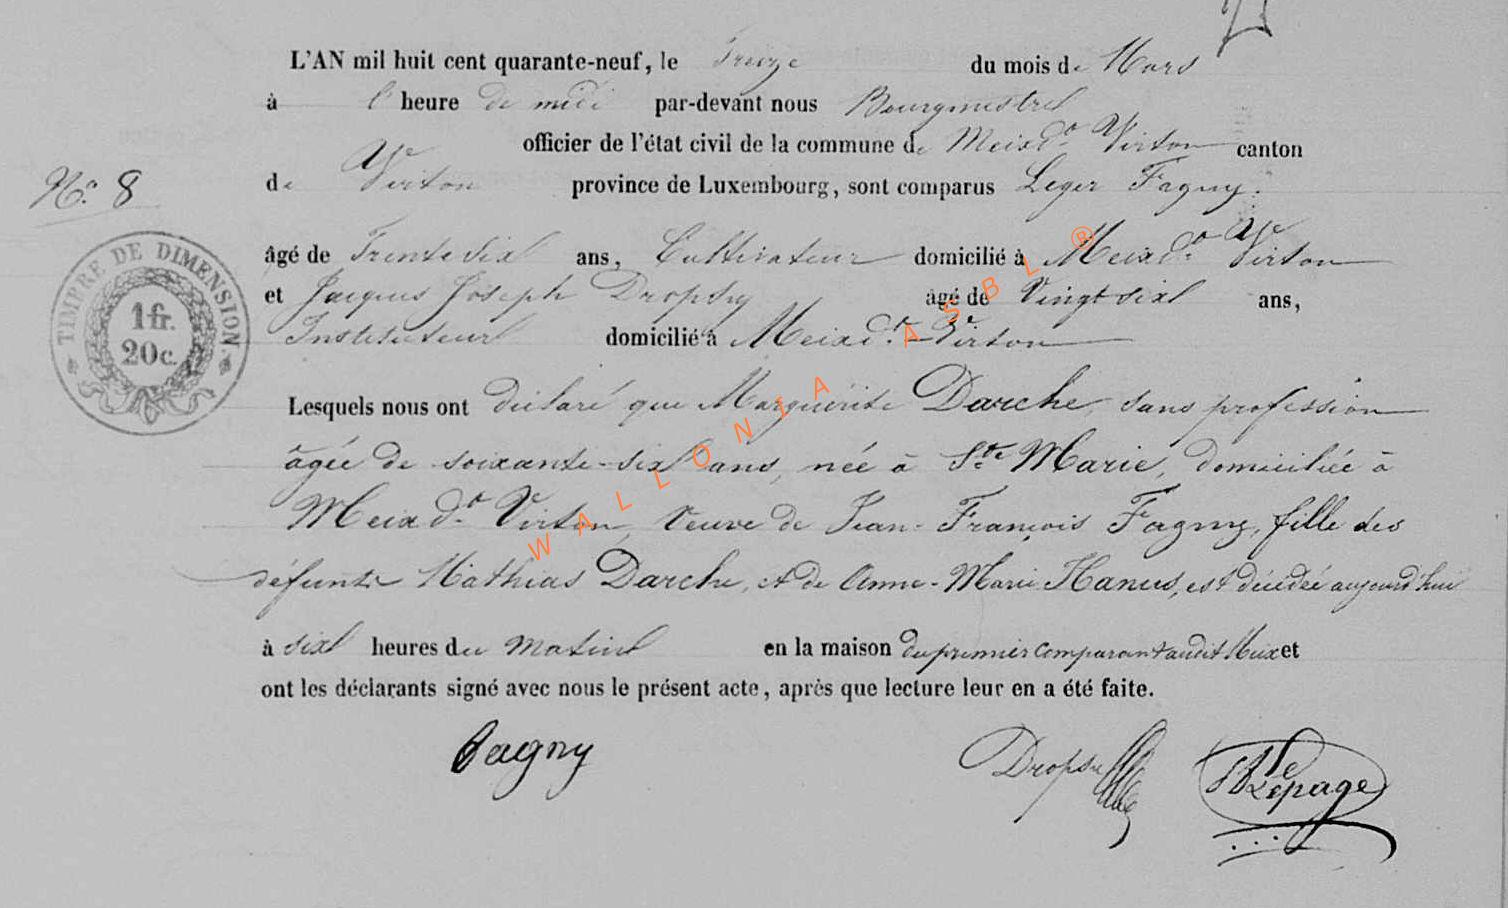 L'AN mil huit cent quarante-neuf, le Treize du mois de Mars
à l'heure de midi par-devant nous Bourgmestre
officier de l'état civil de la commune de Meix dt Virton canton
de Virton province de Luxembourg, sont comparus Leger Fagny.
N° 8
âgé de Trente six ans, Cultivateur domicilié à Meix dt Virton
et Jacques Joseph Dropsy âgé de Vingt six ans,
Instituteur domicilié à Meix dt Virton
TIMPRE DE DIMENSION
1 fr.
20 c.
Lesquels nous ont déclaré que Marguerite Darche, sans profession
âgée de soixante-six ans, née à Ste Marie, domiciliée à
Meix dt Virton, Veuve de Jean-François Fagny, fille des
défunts Mathias Darche, et de Anne-Marie Hanus, est décédée aujourd'hui
à six heures du matin en la maison du premier comparant audit Meix et
ont les déclarants signé avec nous le présent acte, après que lecture leur en a été faite.
Fagny Dropsy Lepage
WALLONIA ASBL ®